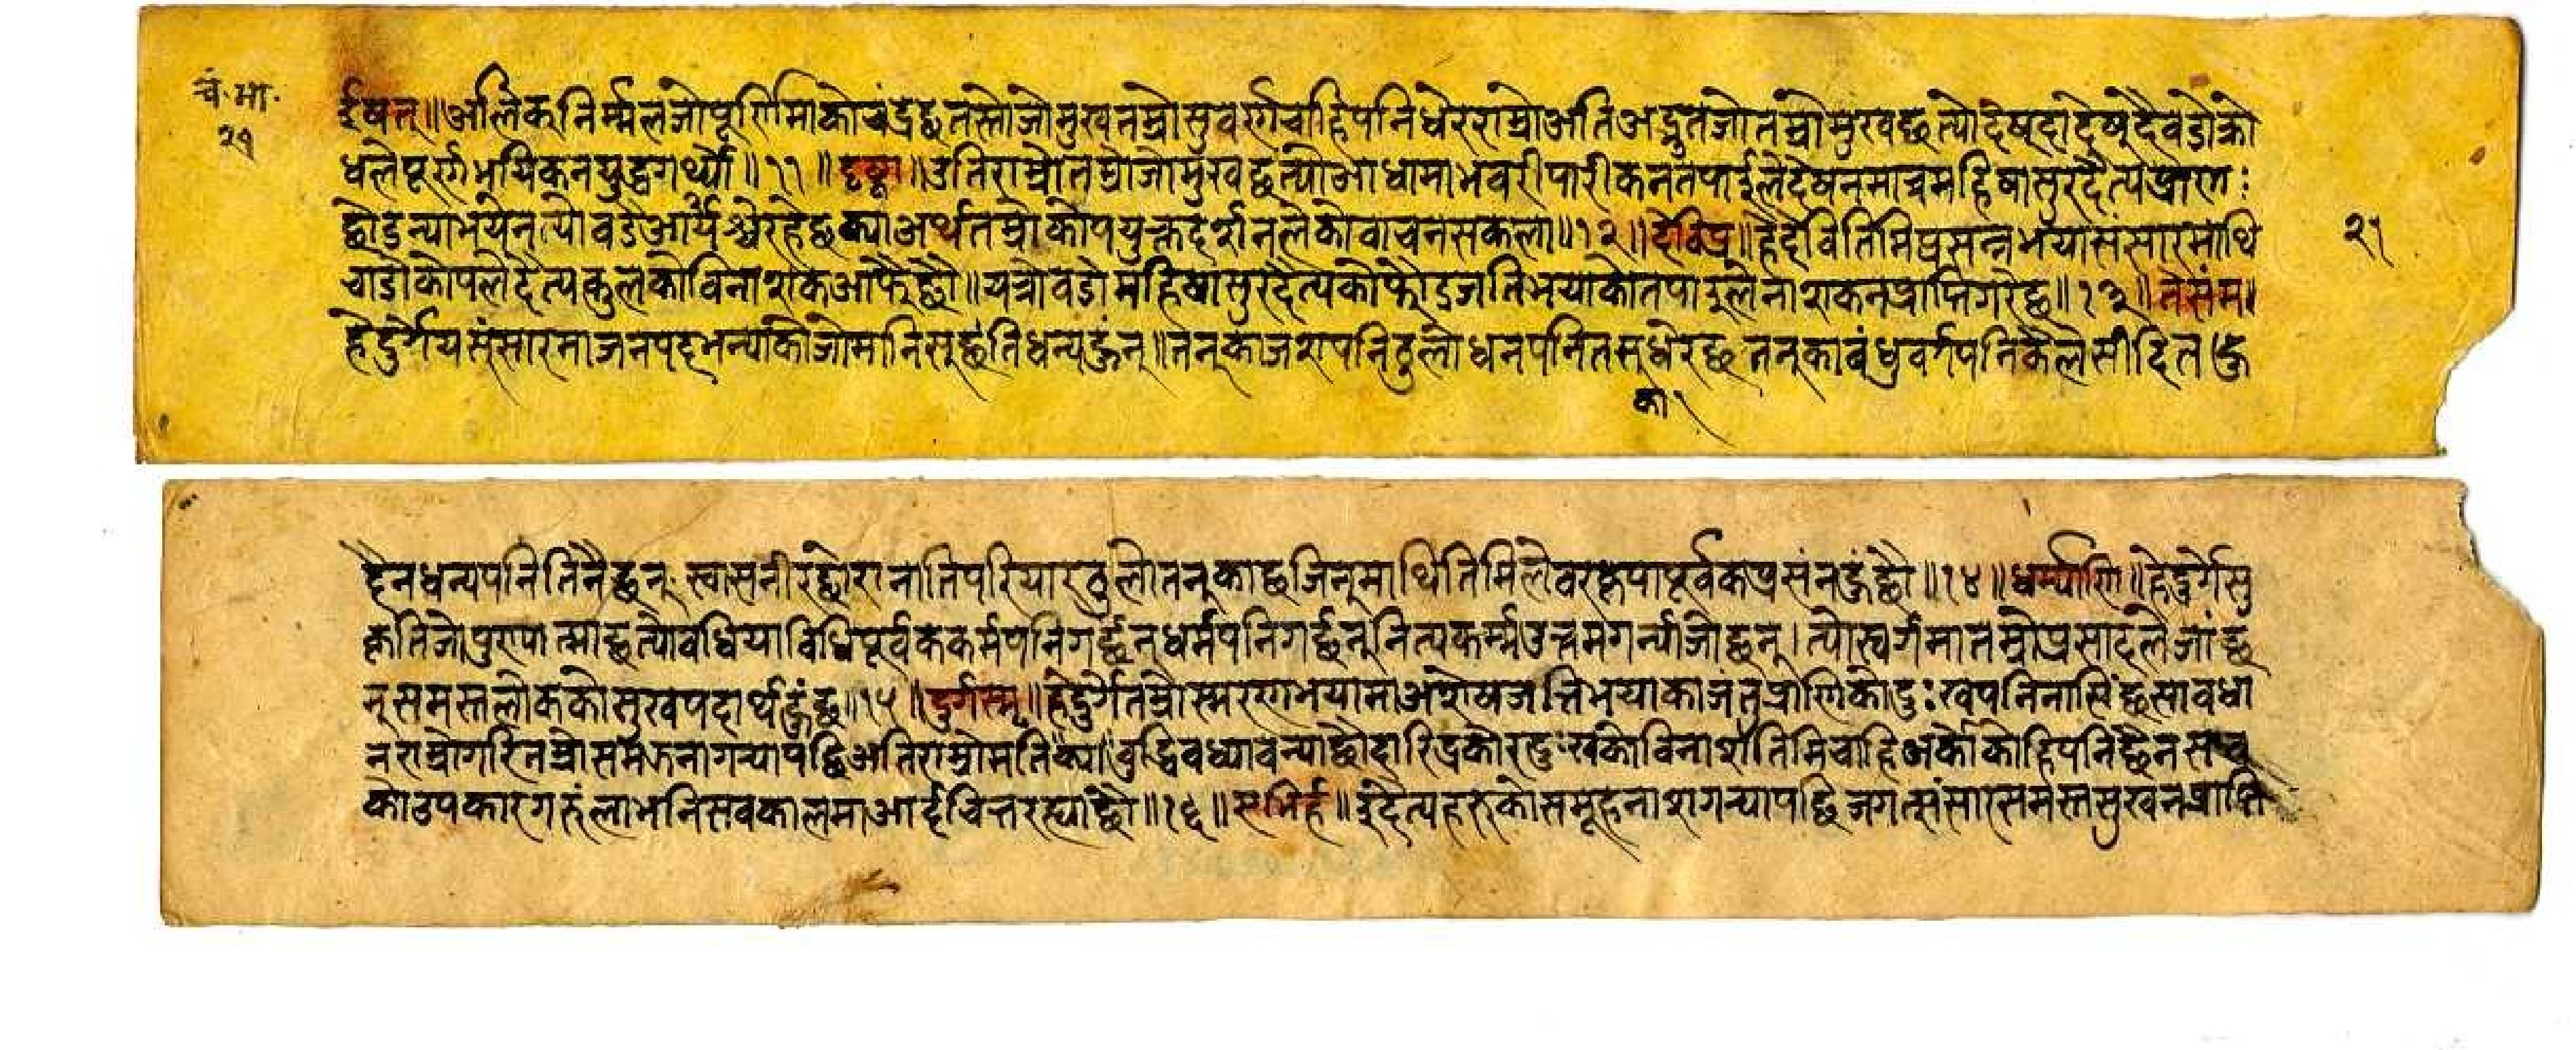 चं.भा.
२१
ईषत्॥अलिकनिर्म्मलजोपूर्णिमाकोचंद्रछतस्तोजोमुखनम्रोसुवर्णचाहिपनिधेरैराम्रोअतिअद्भुतजोतम्रोमुखछत्योदेषूदादेषूदैवडोक्रो
धलेपूर्णभयिकनयुद्धगर्थ्यो॥११॥दृष्ट्वा॥उतिराम्रोतम्रोजोमुखछत्योआधामाभवरीपारीकनतपाईलेदेषनमाचमहिषासुरदैत्यप्राण:
छोडन्याभयेन्त्योवडेआर्यैश्चेरहेछक्याअर्थतम्राकोपयुक्तदर्शनलेकोवाचनसकला॥१२॥देविप्र॥हेदेवितिमिप्रसन्नभयासंसारमाथि
चाडोकोपलेदैत्यकुलकोविनाशकआफैछौ॥यत्रोवडोमहिषासुरदैत्यकोफौडजतिभयाकोतपाइलेनाशकनप्राप्तिगरेछ॥१३॥तेसंम॥
हेदुर्गेयसंसारमाजनपदभन्याकोजोमानिसछतिधन्यहुन्॥तनुकाजशपनिठुलोधनपनितसधेरैछ तनुकाबंधुवर्गपनिकैलेसीदितहु
का
२१
दैनधन्यपनितिनैछन् स्वास्नीरछोरानातिपरियारठुलोतनुकाछजिनुमाथितिमिलेवरकृपापूर्वकप्रसंनहुंछौ॥१४॥धर्म्याणि॥हेदुर्गेसु
कृतिजोपुण्यात्माछत्योवधियाविधिपूर्वककर्मपनिगर्छन्धर्मपनिगर्छन्नित्यकर्म्मउत्तमगर्न्याजोछन्।त्योस्वर्गमातम्रोप्रसादलेजांछ
नूसमस्तलोकेकोसुखपदार्थहुंछ॥१५॥दुर्गेस्मृ॥हेदुर्गेतम्रोस्मरणभयामाअशेषजत्तिभयाकाजनप्राणिकोदुःखपनिनासिंछसावधा
नराम्रोगरितम्रोसमझनागन्यापछिअतिराम्रोमतिक्याबुद्धिवध्यावन्याछौदारिद्रकोरदुःखकोविनाशतिमिचाहिअर्कोकोहिपनिछैनसब
कोउपकारगरुंलाभनिसबकालमाआर्द्रचित्तरह्याछौ॥१६॥एभिर्ह॥इंदैत्यहरुकोसमूहनाशगन्यापछिजगत्संसारसमस्तसुखनप्राप्ति